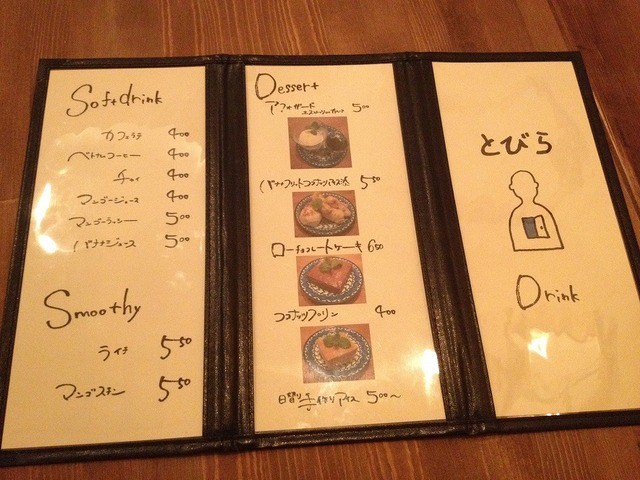 Softdrink
カフェラテ 400
ベトナムコーヒー 400
チャイ 400
マンゴージュース 400
マンゴーラッシー 500
バナナジュース 500
Smoothy
ライチ 550
マンゴスチン 550
Dessert
アフォガード 500
バナナフリットココナッツアイス添え 550
ローチョコレートケーキ 650
ココナッツプリン 400
日替り手作りアイス 500~
とびら
Drink